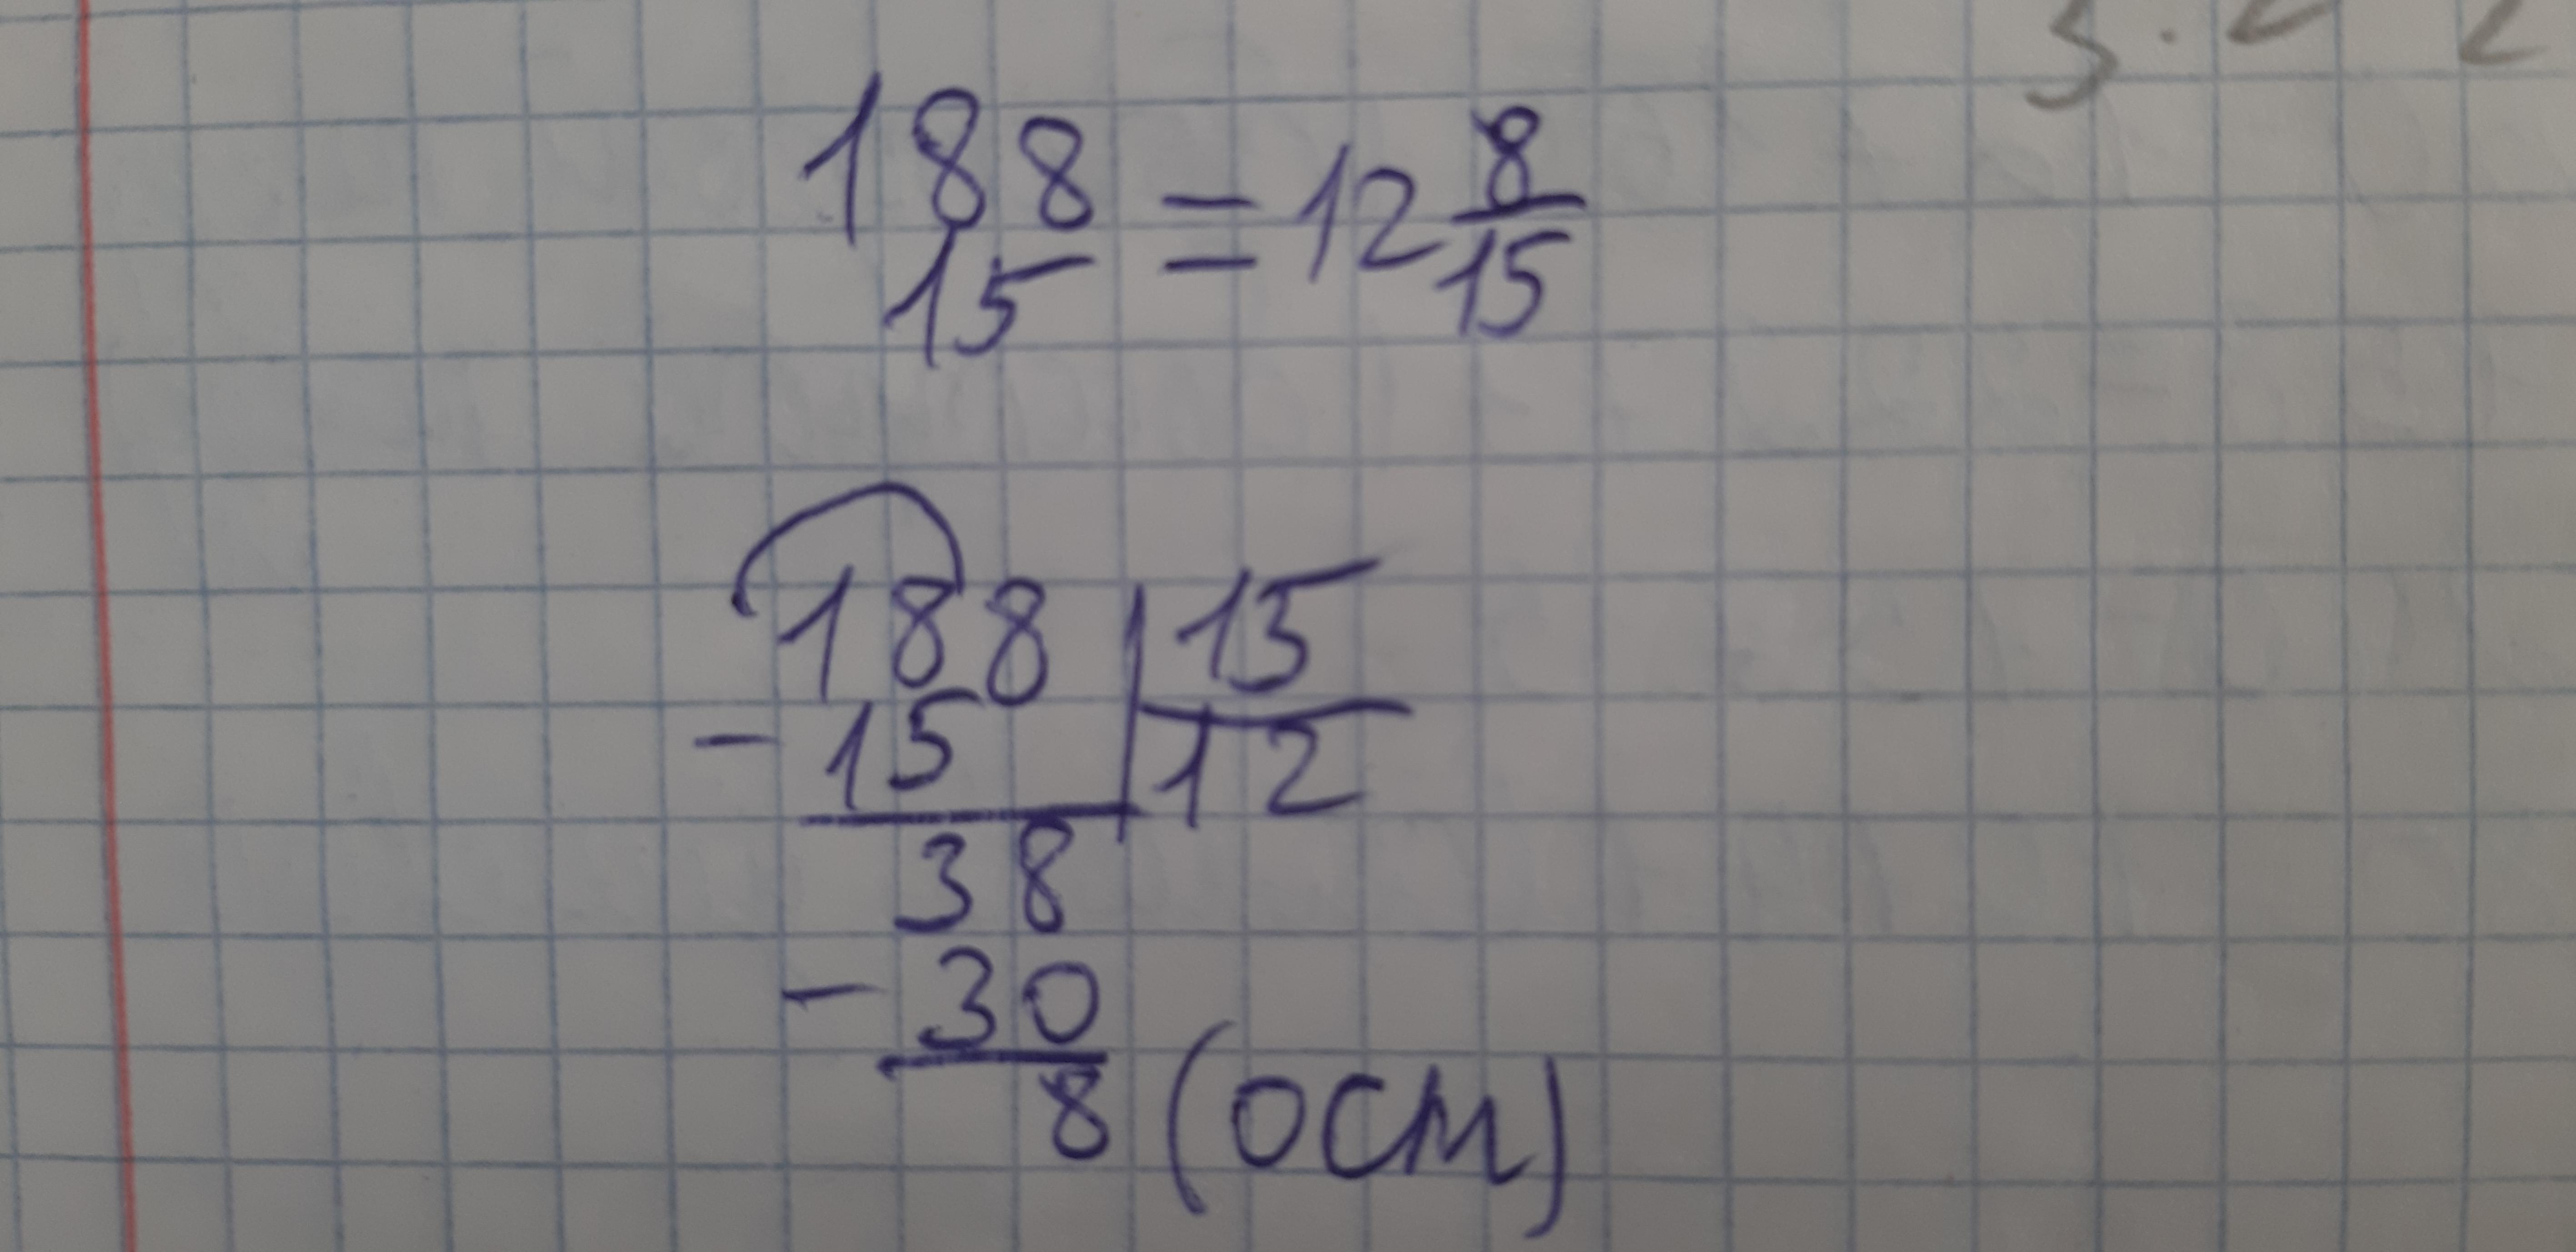 188/15 = 12 8/15
188 | 15
- 15 | 12
38
- 30
8 (осм)